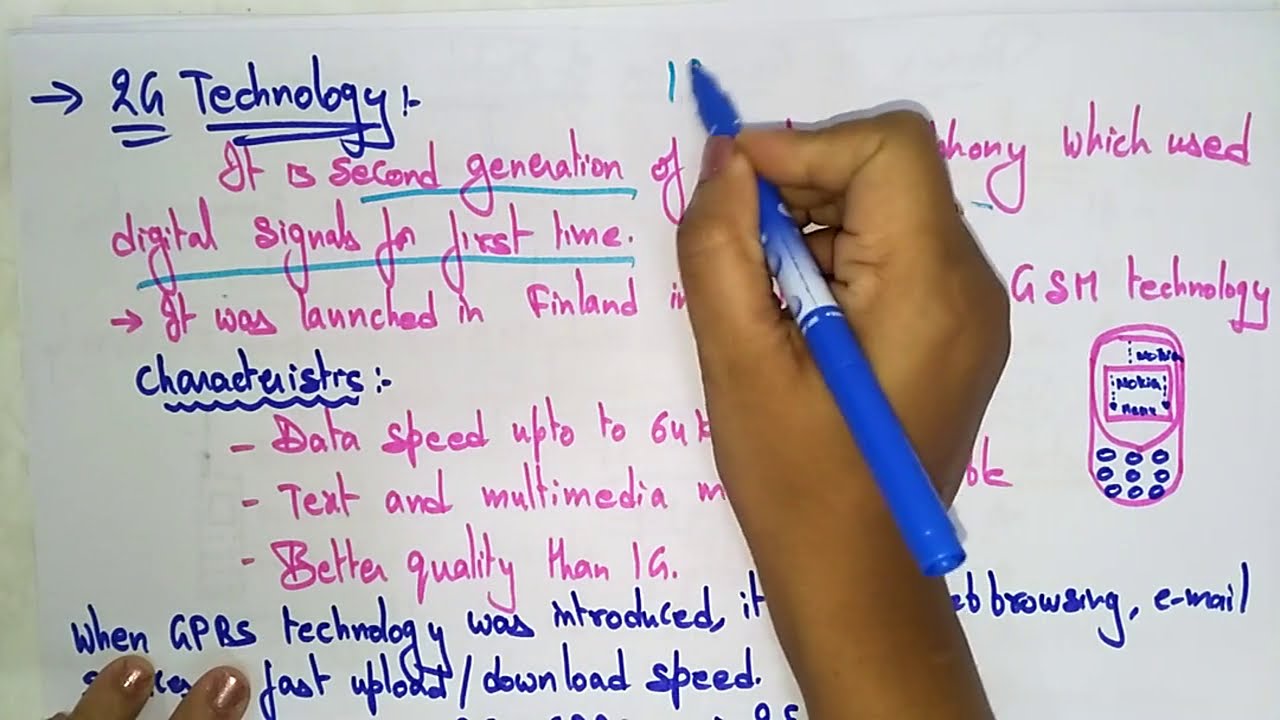 → 2G Technology :-
It is second generation of phony which used
digital signals for first time.
→ It was launched in Finland in GSM technology
Characteristrs :-
- Data speed upto to 64 k
- Text and multimedia m
- Better quality than 1G.
When GPRS technology was introduced, it eb browsing, e-mail
fast upload / download speed.
Nokia
Nokia
Menu